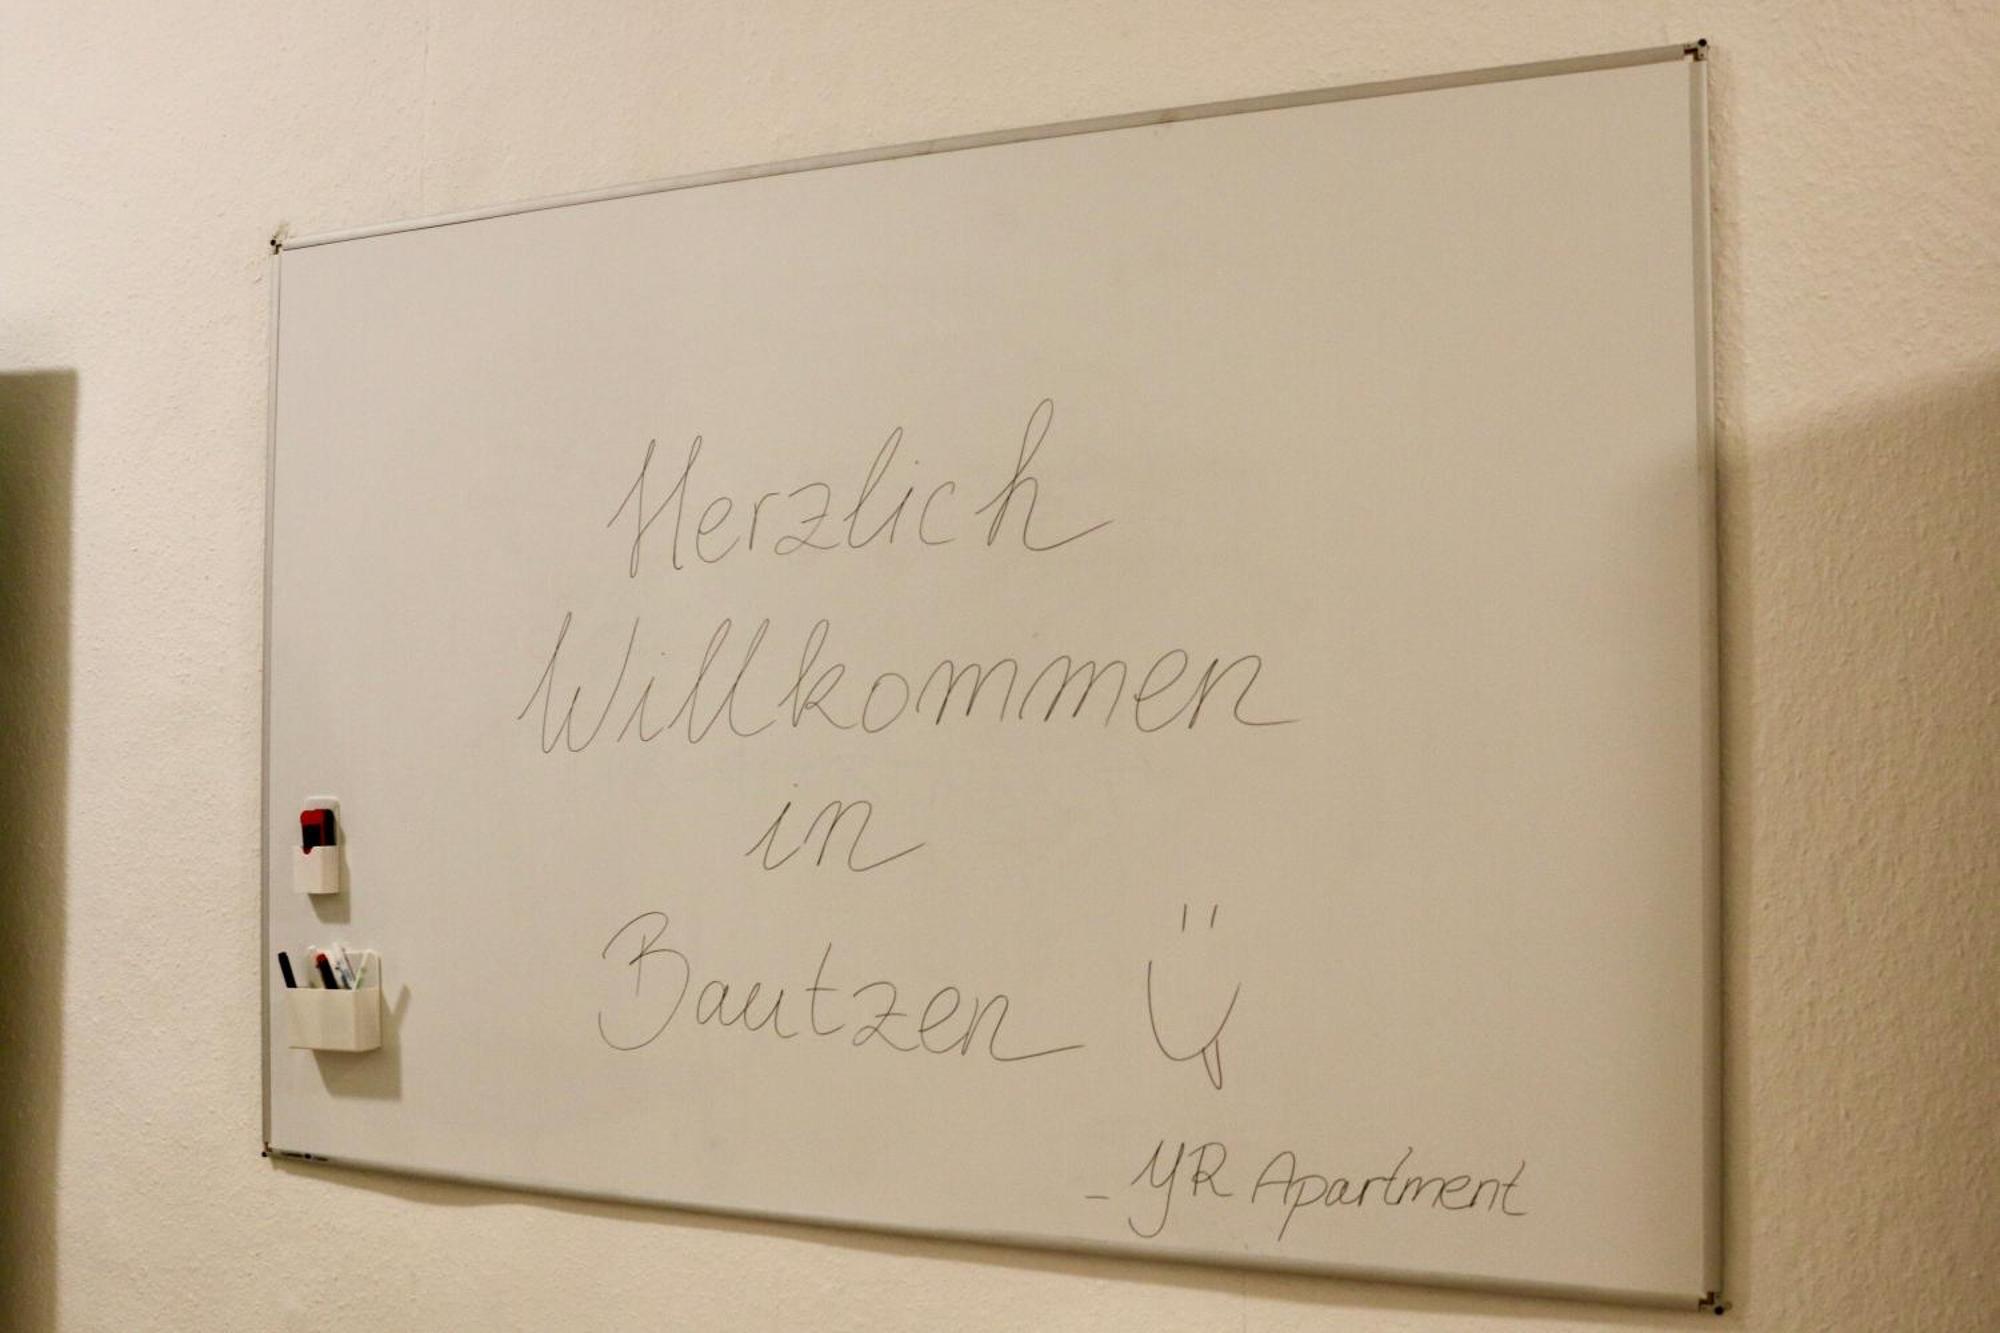 Herzlich
Willkommen
in
Bautzen
- YR Apartment